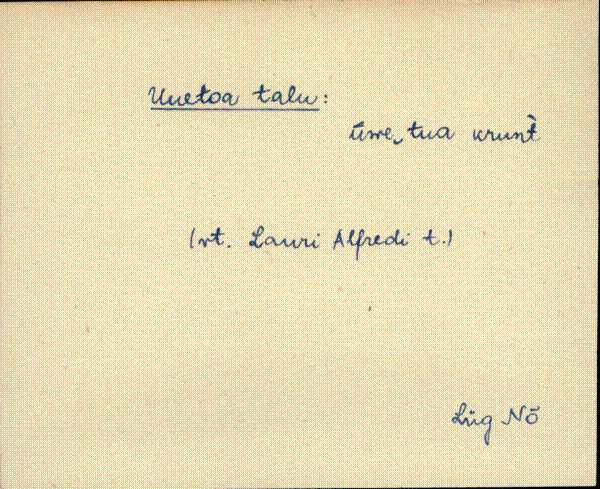 Uuetoa talu:
ūwe‿tua krunt̀
(vt. Lauri Alfredi t.)
Lüg Nõ